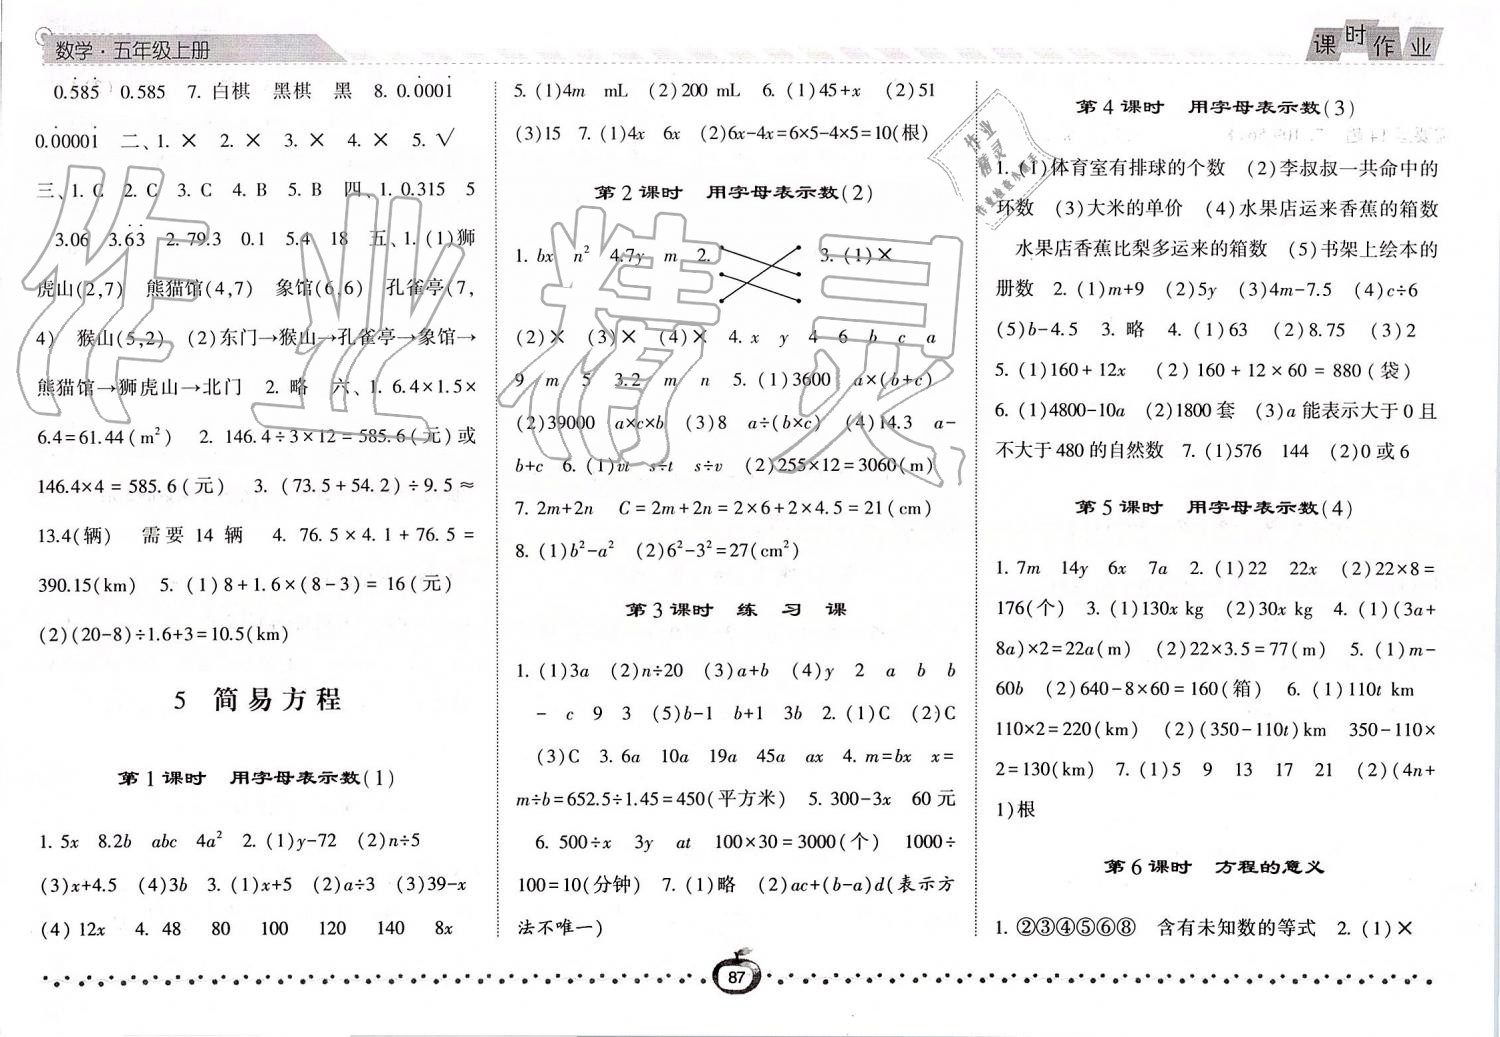 数学·五年级上册
课时作业
0.5̇85̇ 0.585 7. 白棋 黑棋 黑 8. 0.0̇001̇
0.0̇0001̇ 二、1. × 2. × 3. × 4. × 5. √
三、1. C 2. C 3. C 4. B 5. B 四、1. 0.315 5
3.06 3.6̇3̇ 2. 79.3 0.1 5.4 18 五、1. (1)狮
虎山(2,7) 熊猫馆(4,7) 象馆(6,6) 孔雀亭(7,
4) 猴山(5,2) (2)东门→猴山→孔雀亭→象馆→
熊猫馆→狮虎山→北门 2. 略 六、1. 6.4×1.5×
6.4=61.44(m²) 2. 146.4÷3×12=585.6(元)或
146.4×4=585.6(元) 3. (73.5+54.2)÷9.5≈
13.4(辆) 需要 14 辆 4. 76.5×4.1+76.5=
390.15(km) 5. (1)8+1.6×(8-3)=16(元)
(2)(20-8)÷1.6+3=10.5(km)
5 简易方程
第1课时 用字母表示数(1)
1. 5x 8.2b abc 4a² 2. (1)y-72 (2)n÷5
(3)x+4.5 (4)3b 3. (1)x+5 (2)a÷3 (3)39-x
(4) 12x 4. 48 80 100 120 140 8x
5. (1)4m mL (2)200 mL 6. (1)45+x (2)51
(3)15 7. (1)4x 6x (2)6x-4x=6×5-4×5=10(根)
第2课时 用字母表示数(2)
1. bx n² 4.7y m 2. 3. (1)×
(2)× (3)× (4)× 4. x y 4 6 b c a
9 m 5 3.2 m n 5. (1)3600 a×(b+c)
(2)39000 a×c×b (3)8 a÷(b×c) (4)14.3 a-
b+c 6. (1)vt s÷t s÷v (2)255×12=3060(m)
7. 2m+2n C=2m+2n=2×6+2×4.5=21(cm)
8. (1)b²-a² (2)6²-3²=27(cm²)
第3课时 练 习 课
1. (1)3a (2)n÷20 (3)a+b (4)y 2 a b b
- c 9 3 (5)b-1 b+1 3b 2. (1)C (2)C
(3)C 3. 6a 10a 19a 45a ax 4. m=bx x=
m÷b=652.5÷1.45=450(平方米) 5. 300-3x 60 元
6. 500÷x 3y at 100×30=3000(个) 1000÷
100=10(分钟) 7. (1)略 (2)ac+(b-a)d(表示方
法不唯一)
第4课时 用字母表示数(3)
1. (1)体育室有排球的个数 (2)李叔叔一共命中的
环数 (3)大米的单价 (4)水果店运来香蕉的箱数
水果店香蕉比梨多运来的箱数 (5)书架上绘本的
册数 2. (1)m+9 (2)5y (3)4m-7.5 (4)c÷6
(5)b-4.5 3. 略 4. (1)63 (2)8.75 (3)2
5. (1)160+12x (2)160+12×60=880(袋)
6. (1)4800-10a (2)1800套 (3)a能表示大于0且
不大于480的自然数 7. (1)576 144 (2)0或6
第5课时 用字母表示数(4)
1. 7m 14y 6x 7a 2. (1)22 22x (2)22×8=
176(个) 3. (1)130x kg (2)30x kg 4. (1)(3a+
8a)×2=22a(m) (2)22×3.5=77(m) 5. (1)m-
60b (2)640-8×60=160(箱) 6. (1)110t km
110×2=220(km) (2)(350-110t)km 350-110×
2=130(km) 7. (1)5 9 13 17 21 (2)(4n+
1)根
第6课时 方程的意义
1. ②③④⑤⑥⑧ 含有未知数的等式 2. (1)×
87
作业精灵
作业
精灵